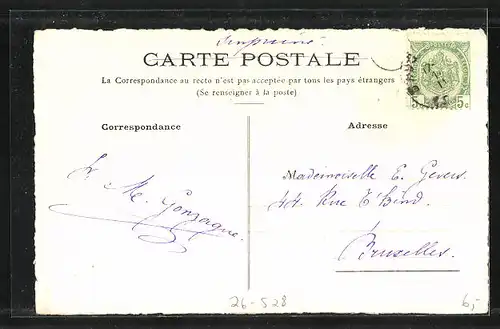 Imprimé.
CARTE POSTALE
La Correspondance au recto n'est pas acceptée par tous les pays étrangers
(Se renseigner à la poste)
5 5c
Correspondance
Adresse
M. Gonzague.
Mademoiselle E. Gevers.
44. Rue
Bruxelles.
26-528
6,-